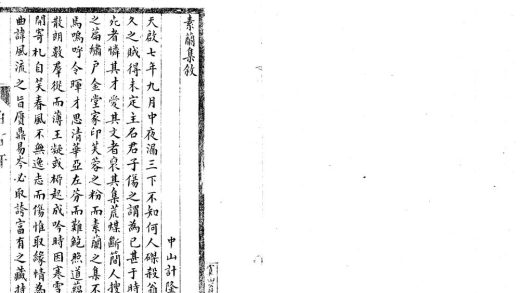 素蘭集敘
中山計隆
天啟七年九月中夜漏三下不知何人磔殺翁
久之賊得未定主名君子傷之謂為已甚于時
死者憐其才愛其文者裒其集荒煤斷簡人搜
之篇繡戶金堂家印芙蓉之粉而素蘭之集不
焉嗚呼令暉才思清華亞左芬而難鮑照道蘊
散朗數羣從而薄王凝或起成吟時因寒雪
閒寄札自芙春風不無逸志而傷惟取緣情為
曲諱風流之旨贋鼎易岑必取誇富有之藏持